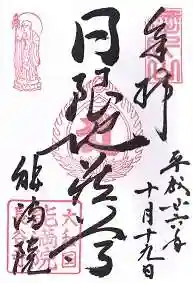 奉拝
平成廿六年
十月十九日
日限地蔵尊
能満院
大和国